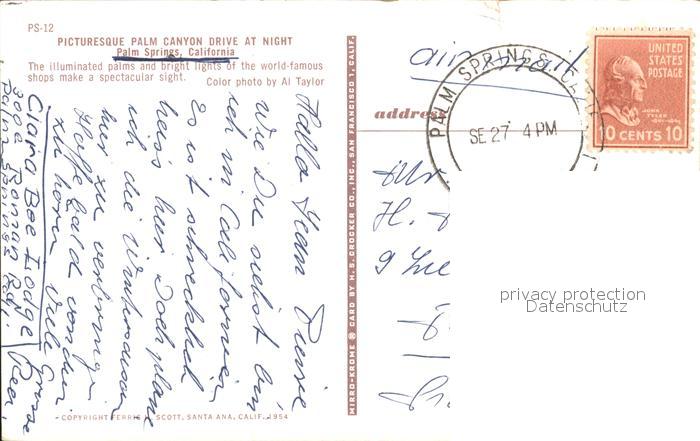 PS-12
PICTURESQUE PALM CANYON DRIVE AT NIGHT
Palm Springs, California
The illuminated palms and bright lights of the world-famous
shops make a spectacular sight. Color photo by Al Taylor
Hallo Jean Pierre
Wie Du siehst bin
ich in Californien
Es ist schrecklich
heiss hier Doch plane
ich die Wintersaison
hier zu verbringen
Hoffe bald von dir
zu hören. Viele Grüsse
Bea
Clara Bee Lodge
Palm Springs
COPYRIGHT FERRIS H. SCOTT, SANTA ANA, CALIF. 1954
MIRRO-KROME ® CARD BY H. S. CROCKER CO., INC., SAN FRANCISCO 1, CALIF.
air mail
address
PALM SPRINGS, CALIF.
SE 27 4 PM
UNITED
STATES
POSTAGE
JOHN
TYLER
1841-1845
10 CENTS 10
H.
privacy protection
Datenschutz